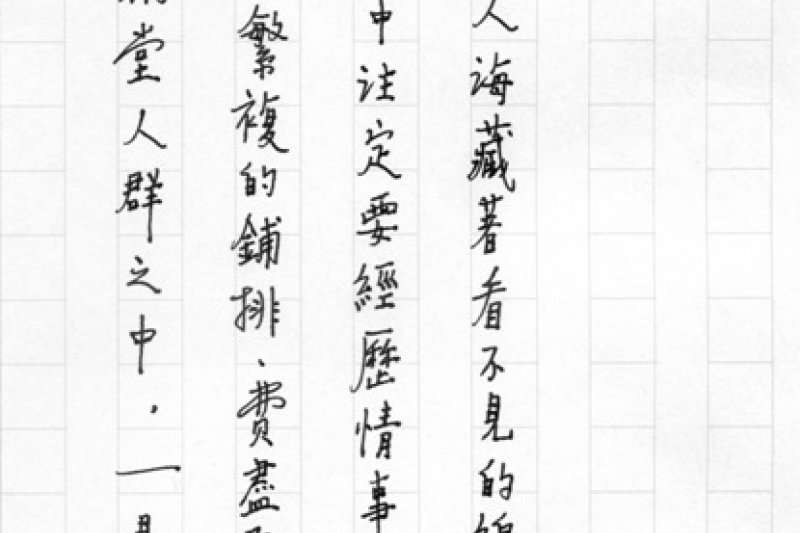 人海藏著看不見的
中注定要經歷情事
繁複的鋪排、費盡
堂人群之中，一